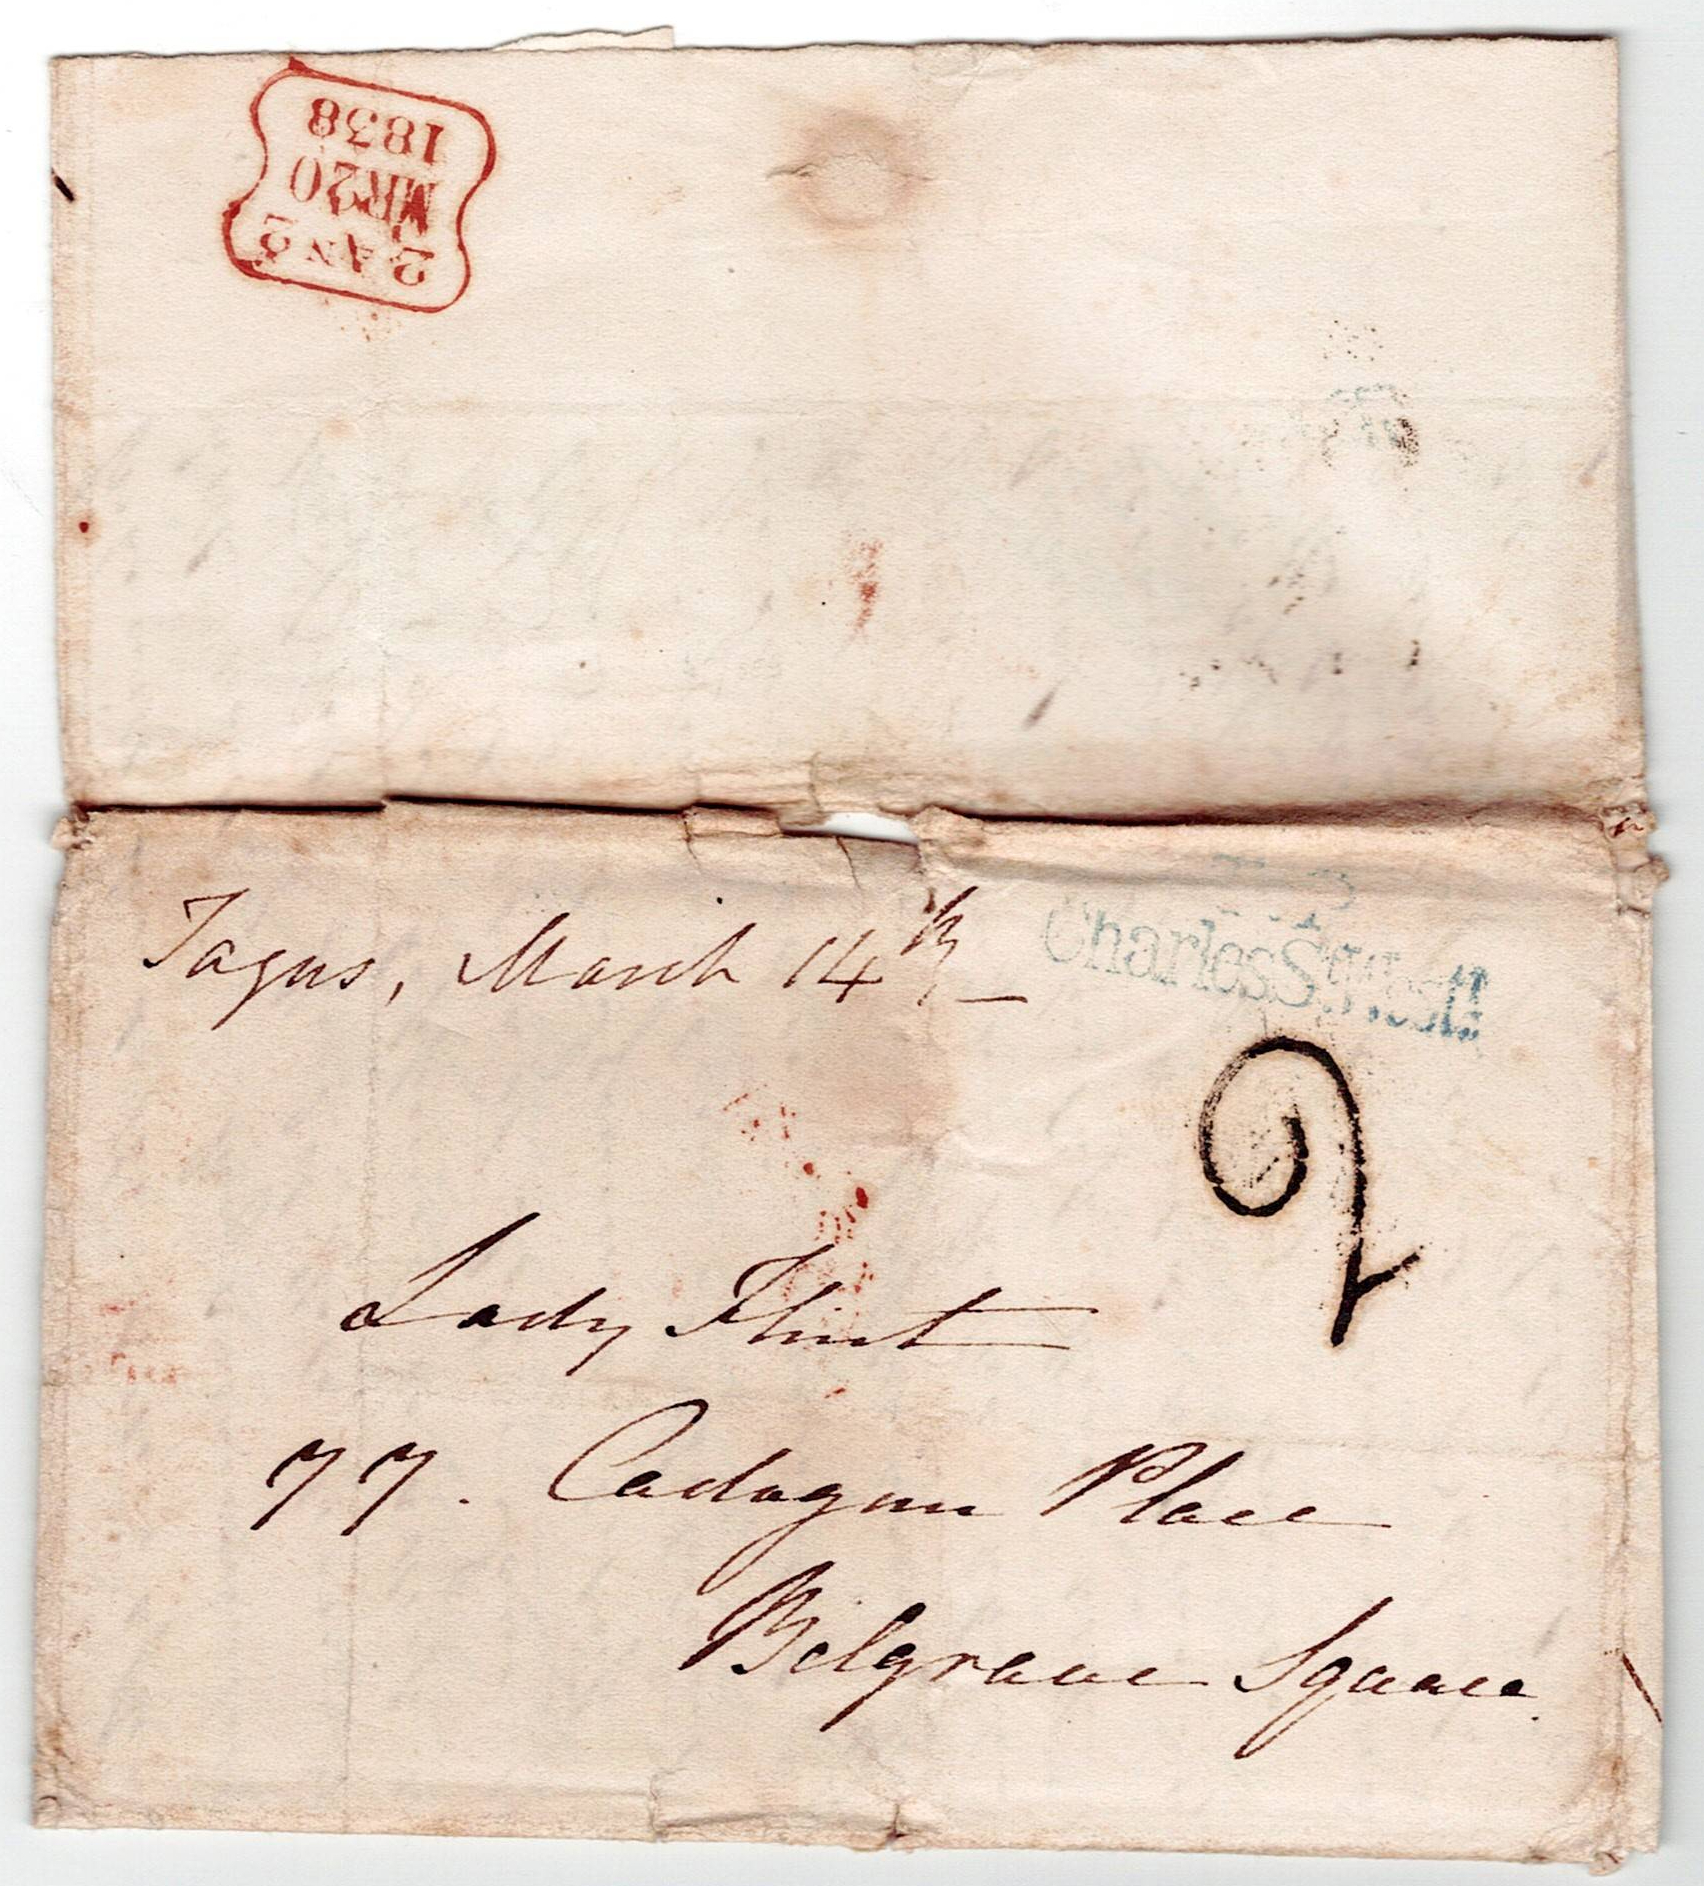 2 AN 2
MR 20
1838
Tagus, March 14th
T.P
Charles St
2
Lady Flint
77. Cadogan Place
Belgrave Square.